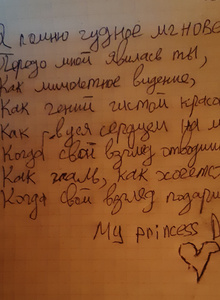 Я помню чудное мгнове
Передо мной явилась ты,
Как мимолетное видение,
Как гений чистой красо
Как сердцем на м
Когда свой взгляд отводиш
Как жаль, как хочется
Когда свой взгляд подари
My princess